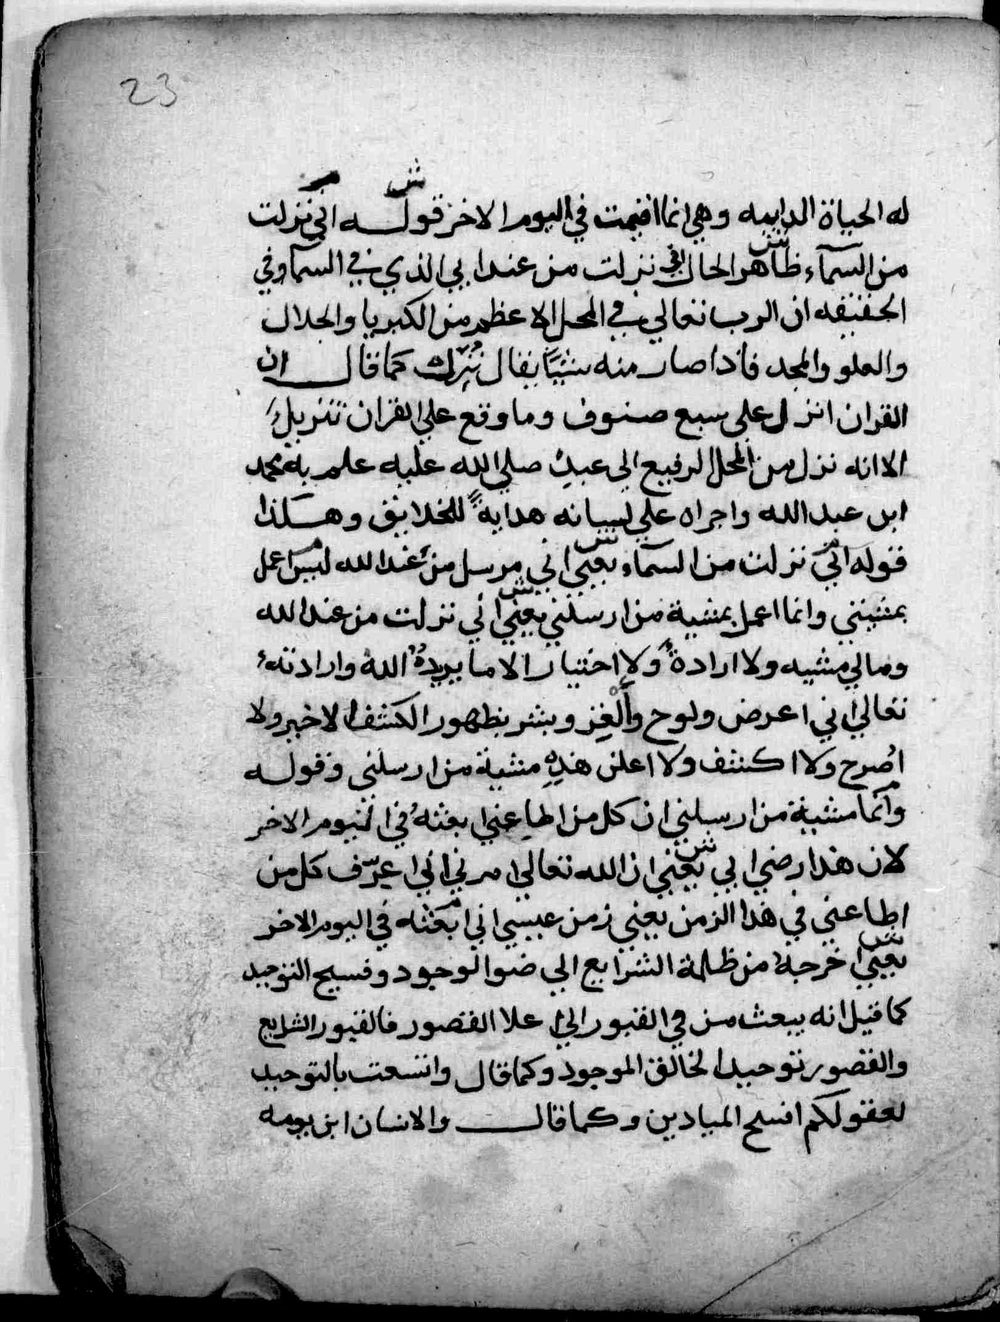 23
ش
له الحياة الدايمه وهي انما اقيمت في اليوم الاخر قوله اني نزلت
من السمآء ظاهر الحال اني نزلت من عند ابي الذي في السما وفي
الحقيقه ان الرب تعالي في المحل الاعظم من الكبريا والجلال
والعلو والمجد فاذا صار منه شيئا يقال نزل كما قال ان
القران انزل علي سبع صنوف وما وقع علي القران تنزيل
الا انه نزل من المحل الرفيع الي عبده صلي الله عليه علم به محمد
ابن عبد الله واجراه علي لسانه هداية للخلايق وهكذا
قوله اني نزلت من السمآء يعني اني مرسل من عند الله ليس اعمل
بمشيتي وانما اعمل بمشية من ارسلني يعني اني نزلت من عند الله
ومالي مشيه ولا ارادة ولا اختيار الا ما يريده الله وارادته
تعالي اني اعرض ولوح والغز وبشر بظهور الكشف الاخير ولا
اصرح ولا اكشف ولا اعلن هذه مشية من ارسلني وقوله
وانما مشية من ارسلني ان كل من اطاعني بعثه في اليوم الاخر
لان هذا رضي ابي يعني ان الله تعالي امرني اني اعرف كل من
اطاعني في هذا الزمن يعني زمن عيسي اني ابعثه في اليوم الاخر
يعني اخرجه من ظلمة الشرايع الي ضو الوجود وفسيح التوحيد
كما قيل انه يبعث من في القبور الي اعلا القصور فالقبور الشرايع
والقصور توحيد الخالق الموجود وكما قال واتسعت بالتوحيد
لعقولكم افسح الميادين وكما قال والانسان ابن يومه